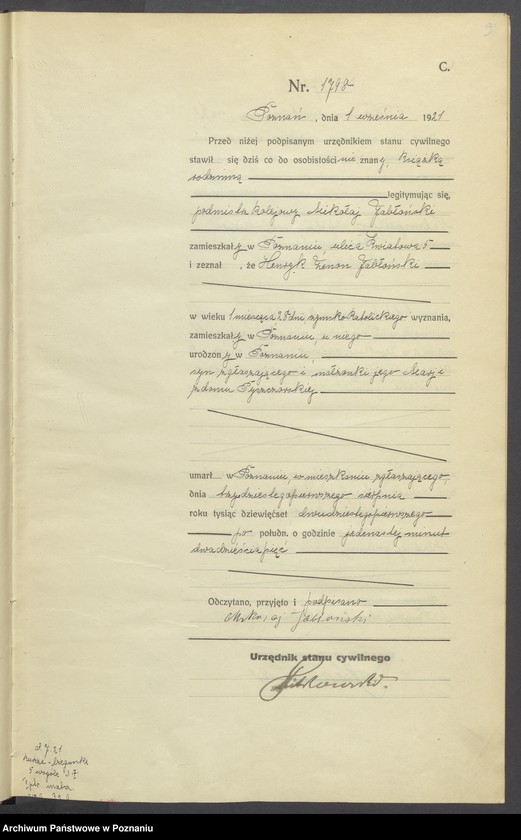 C.
Nr. 1798
Poznań, dnia 1 września 1921
Przed niżej podpisanym urzędnikiem stanu cywilnego
stawił się dziś co do osobistości nie znany, książką
rodzinną
legitymując się,
podmistrz kolejowy Mikołaj Jabłoński
zamieszkały w Poznaniu, ulica Kwiatowa 5
i zeznał, że Henryk Zenon Jabłoński
w wieku 1 miesiąca 28 dni, rzymsko katolickiego wyznania,
zamieszkały w Poznaniu, u niego
urodzony w Poznaniu,
syn zgłaszającego i małżonki jego Marji
z domu
umarł w Poznaniu, w mieszkaniu zgłaszającego,
dnia trzydziestegopierwszego sierpnia
roku tysiąc dziewięćset dwudziestegopierwszego
po połudn. o godzinie jedenastej minut
dwadzieściapięć
Odczytano, przyjęto i podpisano
Mikołaj Jabłoński
Urzędnik stanu cywilnego
Archiwum Państwowe w Poznaniu